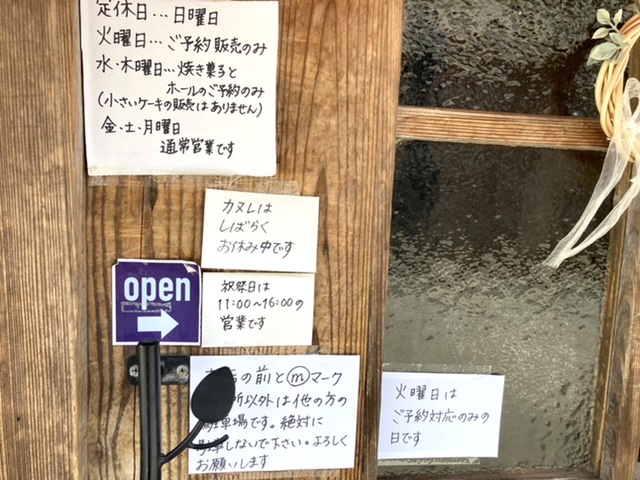 定休日…日曜日
火曜日…ご予約販売のみ
水・木曜日…焼き菓子と
ホールのご予約のみ
(小さいケーキの販売はありません)
金、土、月曜日
通常営業です
カヌレは
しばらく
お休み中です
open
祝祭日は
11:00~16:00の
営業です
の前とⓜマーク
所以外は他の方の
駐車場です。絶対に
駐車しないで下さい。よろしく
お願いします
火曜日は
ご予約対応のみの
日です